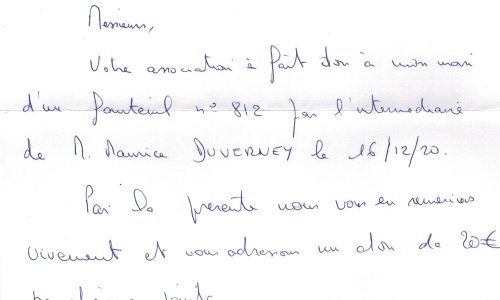 Messieurs,
Votre association à fait don à mon mari
d'un fauteuil n° 812 par l'intermédiaire
de M. Maurice DUVERNEY le 16/12/20.
Par la présente nous vous en remercions
vivement et vous adressons un don de 20€